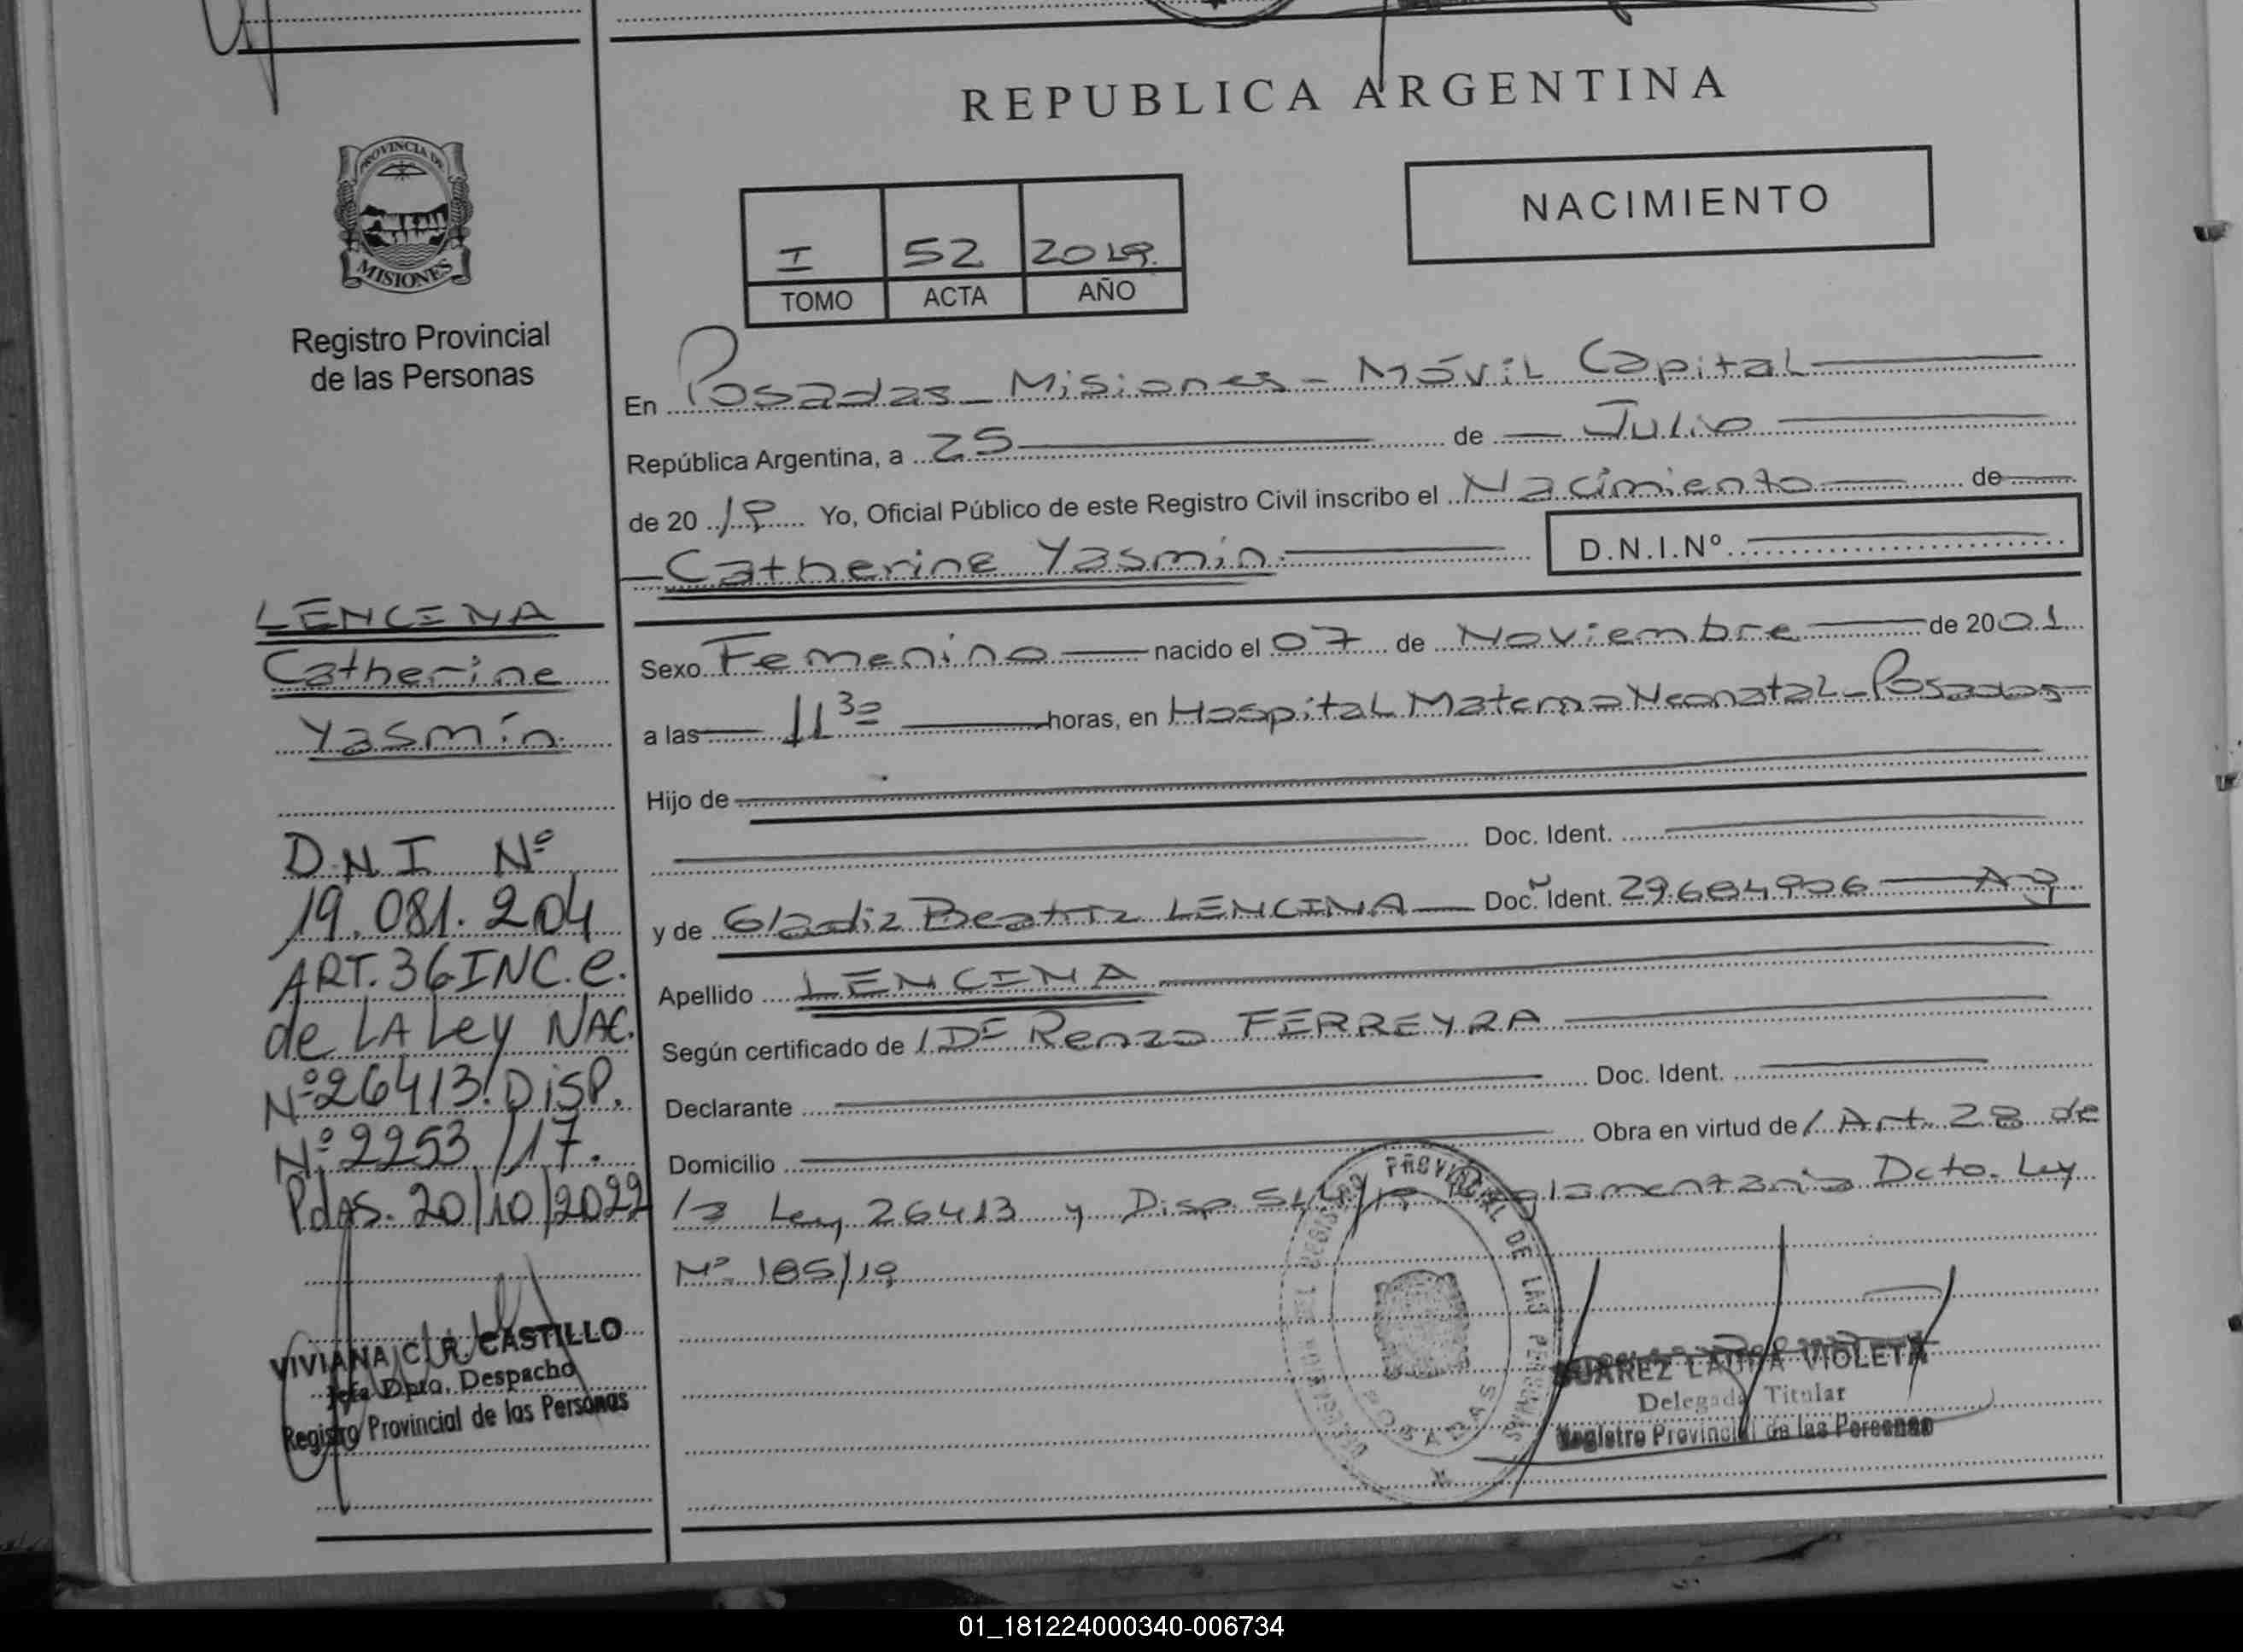 REPUBLICA ARGENTINA
PROVINCIA DE
MISIONES
Registro Provincial
de las Personas
NACIMIENTO
I 52 2019.
TOMO ACTA AÑO
En Posadas - Misiones - Móvil Capital
República Argentina, a 25 de Julio
de 2019 Yo, Oficial Público de este Registro Civil inscribo el Nacimiento de
Catherine Yasmín. D.N.I.Nº
LENCINA
Catherine
Yasmín.
D.N.I Nº
19.081.204
ART.36 INC.e.
de LA Ley NAC.
Nº26413. DiSP.
Nº 2253/17.
PdAS. 20/10/2022
VIVIANA C. R. CASTILLO
Jefa Dpto. Despacho
Registro Provincial de las Personas
Sexo Femenino nacido el 07 de Noviembre de 2001
a las 11 30 horas, en Hospital Materno Neonatal - Posadas
Hijo de
Doc. Ident.
y de Gladiz Beatriz LENCINA Doc. Ident. 29.684.906
Apellido LENCINA
Según certificado de / Dr Renzo FERREYRA
Declarante Doc. Ident.
Domicilio Obra en virtud de / Art. 28 de
la Ley 26413 y Disp. Reglamentaria Dcto. Ley
Nº 185/19
REGISTRO PROVINCIAL DE LAS PERSONAS
POSADAS
SUAREZ LAURA VIOLETA
Delegada Titular
Registro Provincial de las Personas
01_181224000340-006734